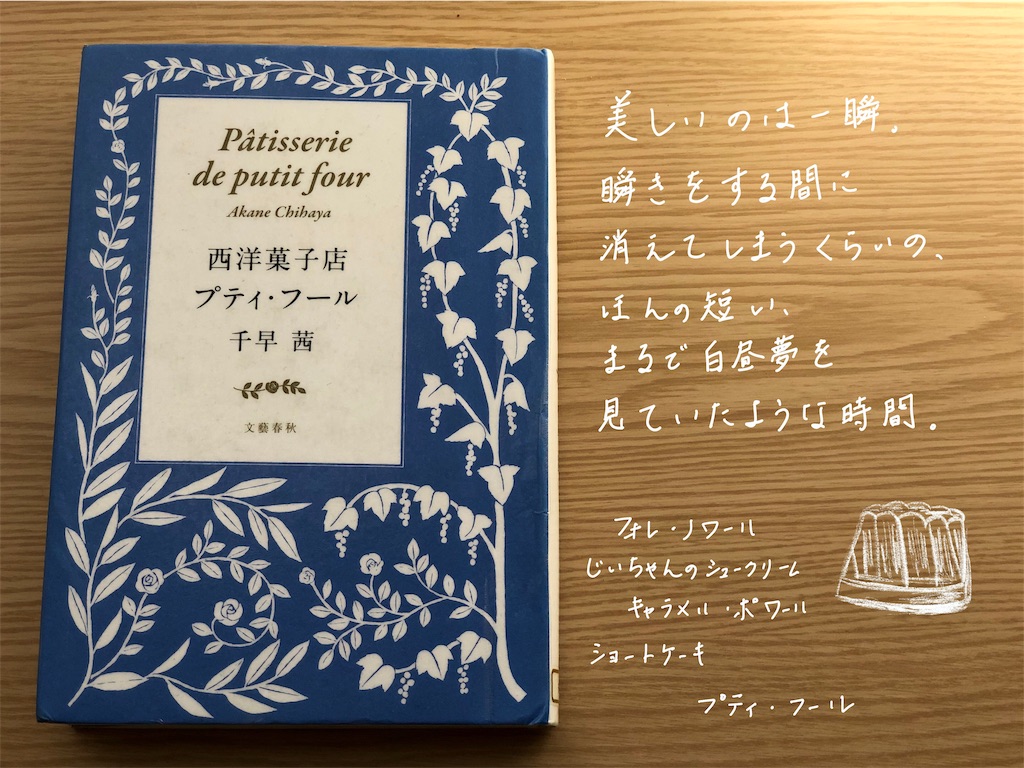 Pâtisserie
de putit four
Akane Chihaya
西洋菓子店
プティ・フール
千早 茜
文藝春秋
美しいのは一瞬。
瞬きをする間に
消えてしまうくらいの、
ほんの短い、
まるで白昼夢を
見ていたような時間。
フォレ・ノワール
じいちゃんのシュークリーム
キャラメル・ポワール
ショートケーキ
プティ・フール